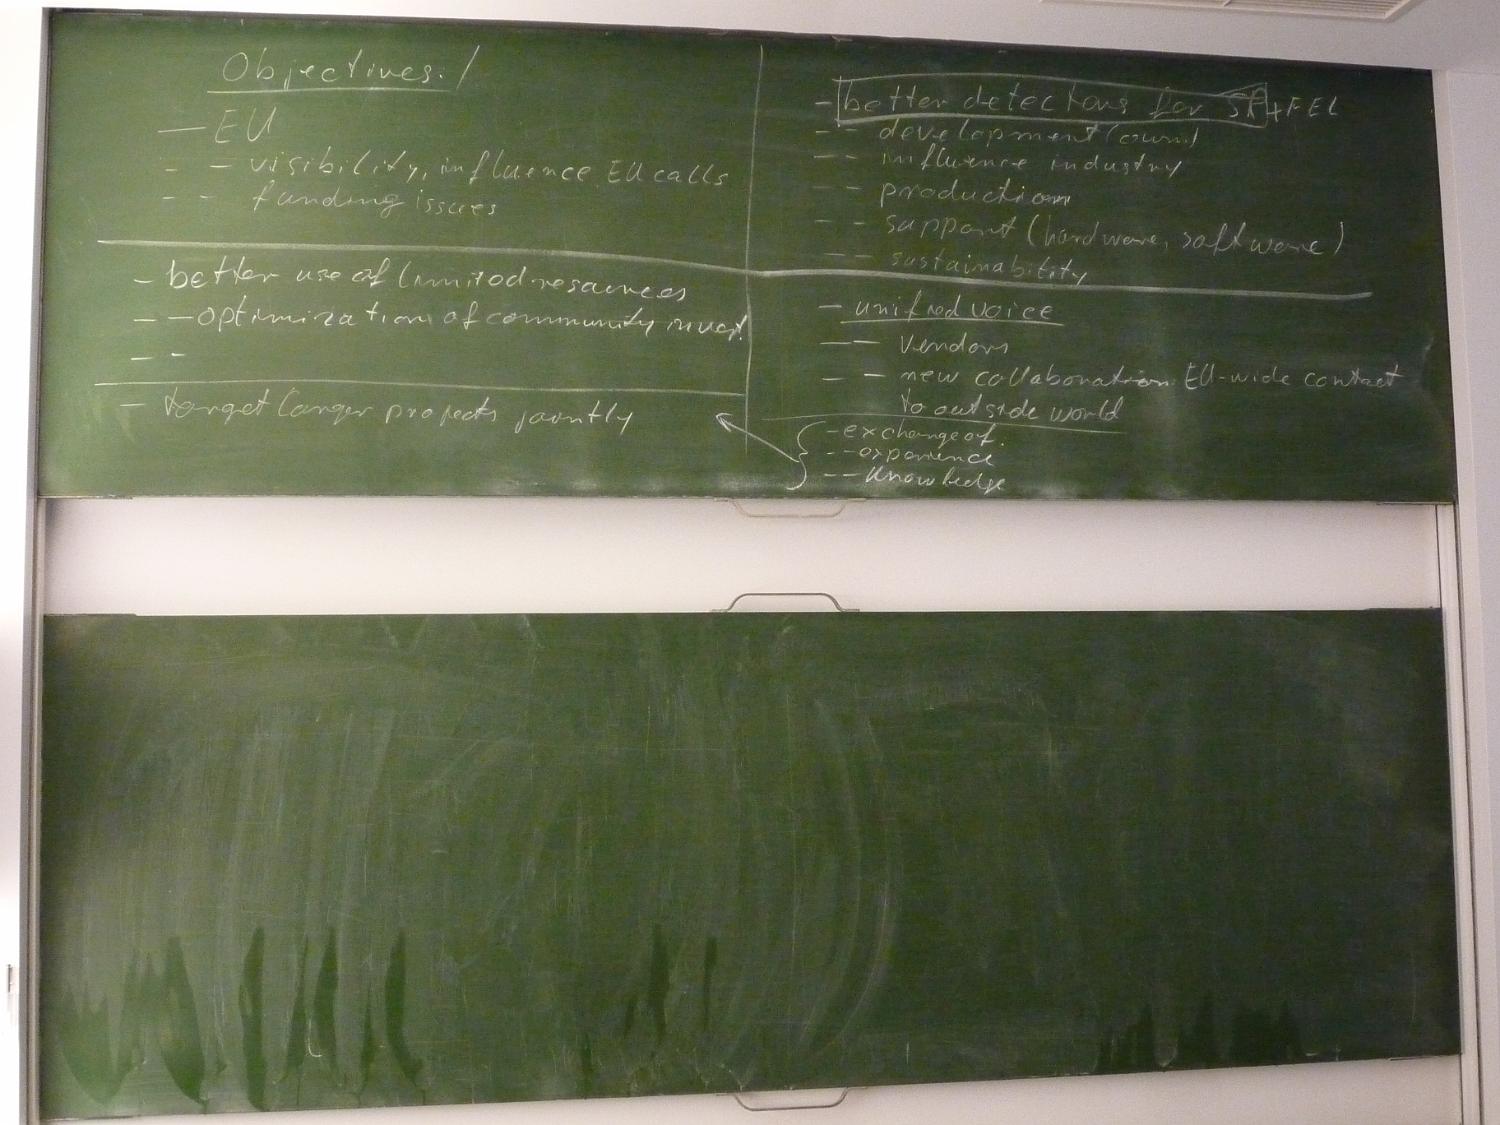 Objectives:/
— EU
- - visibility, influence EU calls
- - funding issues
- better use of limited resources
- - optimization of community invest.
- -
- target larger projects jointly
- better detectors for SR + FEL
- - development (own)
- - influence industry
- - production
- - support (hardware, software)
- - sustainability
- unified voice
- - vendors
- - new collaboration EU-wide contact
to outside world
- exchange of.
- - experience
- - knowledge